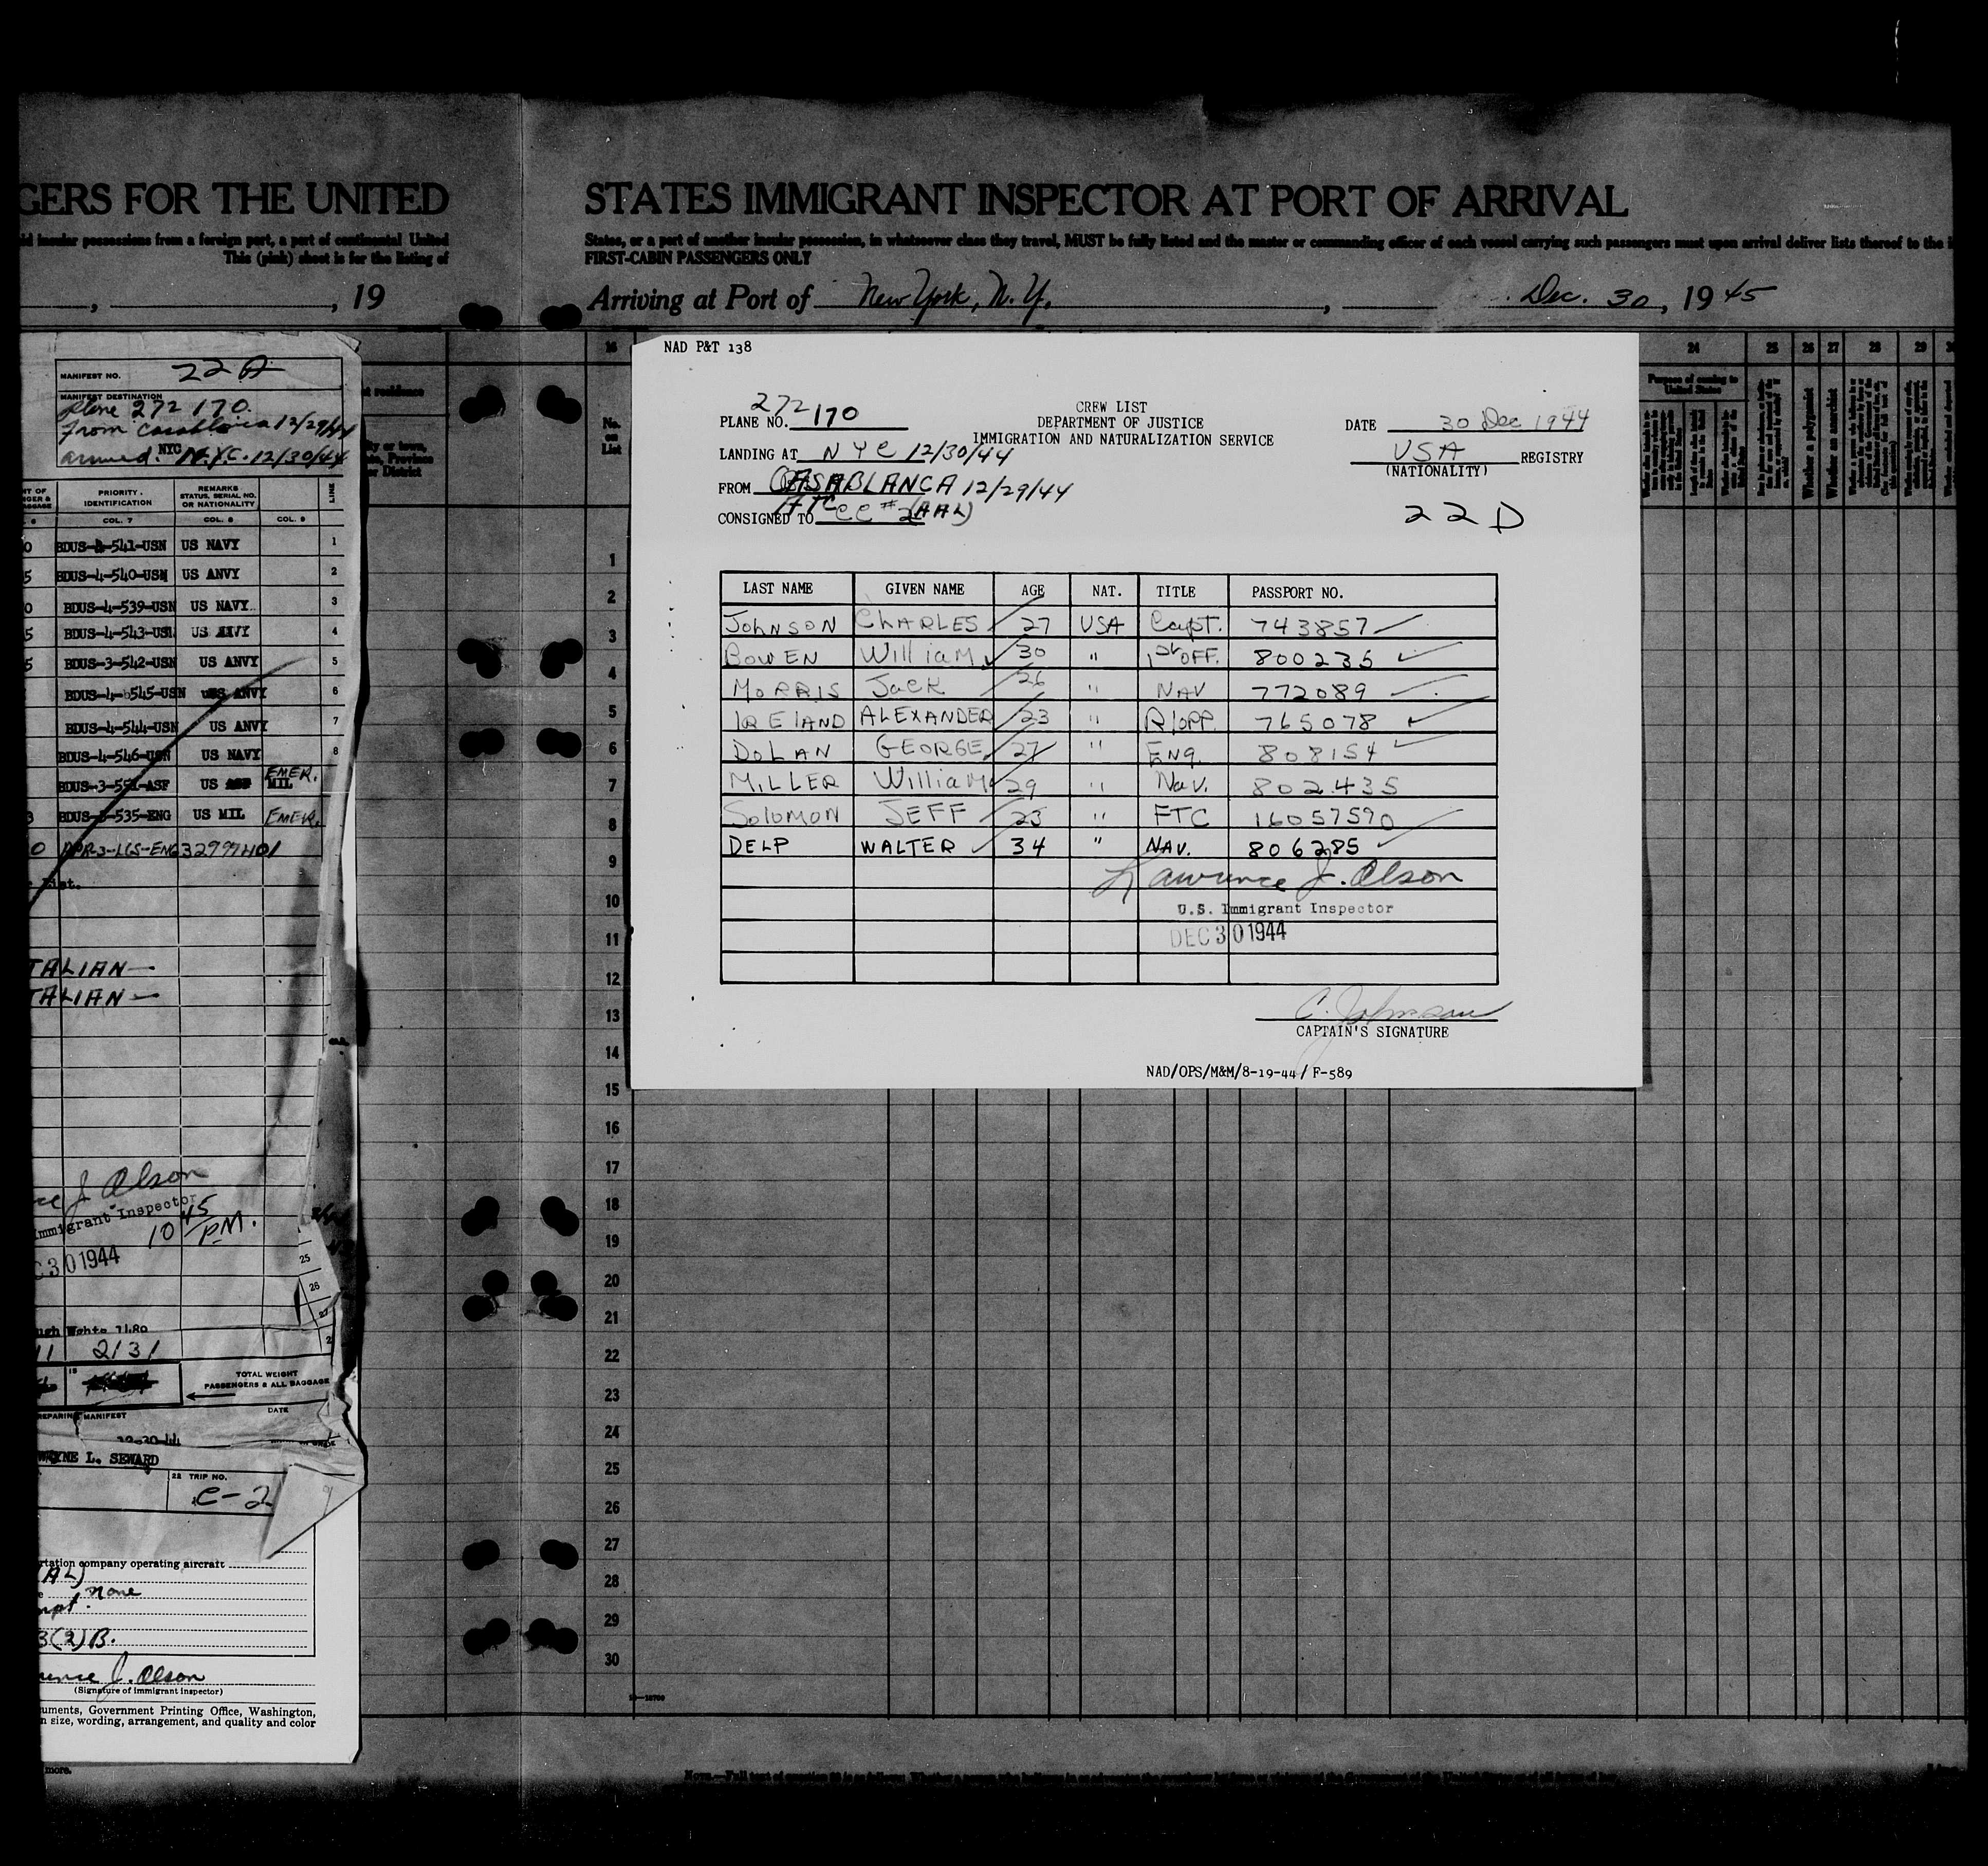 GERS FOR THE UNITED STATES IMMIGRANT INSPECTOR AT PORT OF ARRIVAL
insular possessions from a foreign port, a part of continental United
States, or a part of another insular possession, in whatsoever class they travel, MUST be fully listed and the master or commanding officer of each vessel carrying such passengers must upon arrival deliver lists thereof to the
This (pink) sheet is for the listing of
FIRST-CABIN PASSENGERS ONLY
, 19
Arriving at Port of New York, N.Y., Dec. 30, 1945
MANIFEST NO. 22A
MANIFEST DESTINATION
Plane 272 170.
From Casablanca 12/29/44
NYC
arrived. N.Y.C. 12/30/44
PRIORITY, IDENTIFICATION
REMARKS STATUS, SERIAL NO. OR NATIONALITY
LINE
COL. 7 COL. 8 COL. 9
BDUS-4-541-USN US NAVY 1
BDUS-4-540-USN US ANVY 2
BDUS-4-539-USN US NAVY. 3
BDUS-4-543-USN US NAVY 4
BDUS-3-542-USN US ANVY 5
BDUS-4-545-USN US ANVY 6
BDUS-4-544-USN US ANVY 7
BDUS-4-546-USN US NAVY 8
BDUS-3-551-ASF US MIL EMER.
BDUS-3-535-ENG US MIL EMER.
PPR-3-LGS-ENG 32999401
List.
TALIAN—
TALIAN—
J Olson
Immigrant Inspector
10 45 PM.
C 30 1944
25
26
27
Wghts 1489
11 2131
TOTAL WEIGHT
PASSENGERS & ALL BAGGAGE
PREPARING MANIFEST DATE
12-30-44
WAYNE L. SEWARD
22 TRIP NO.
C-2
rtation company operating aircraft
(AL)
none
mpt.
3(2)B.
Lawrence J. Olson
(Signature of immigrant inspector)
uments, Government Printing Office, Washington,
n size, wording, arrangement, and quality and color
more.
NAD P&T 138
CREW LIST
DEPARTMENT OF JUSTICE
IMMIGRATION AND NATURALIZATION SERVICE
PLANE NO. 272 170
DATE 30 Dec 1944
LANDING AT NYC 12/30/44
USA REGISTRY
(NATIONALITY)
FROM CASABLANCA 12/29/44
CONSIGNED TO ATC CC #2 (AAL)
22D
LAST NAME GIVEN NAME AGE NAT. TITLE PASSPORT NO.
JOHNSON CHARLES 27 USA Capt. 743857
BOWEN William 30 " 1st OFF. 800235
MORRIS Jack 26 " NAV 772089
IRELAND ALEXANDER 23 " R/OPP. 765078
DOLAN GEORGE 27 " ENG. 808154
MILLER William 29 " Nav. 802435
Solomon JEFF 23 " FTC 16057590
DELP WALTER 34 " NAV. 806285
Lawrence J. Olson
U.S. Immigrant Inspector
DEC 30 1944
C. Johnson
CAPTAIN'S SIGNATURE
NAD/OPS/M&M/8-19-44/ F-589
No. on List
1
2
3
4
5
6
7
8
9
10
11
12
13
14
15
16
17
18
19
20
21
22
23
24
25
26
27
28
29
30
24 25 26 27 28 29
Purpose of coming to United States
Whether a polygamist
Whether an anarchist